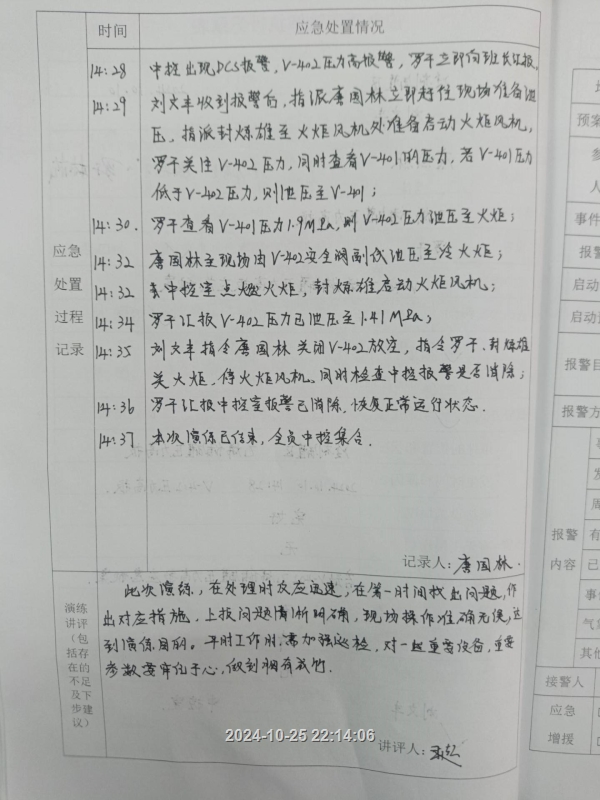 时间 应急处置情况
14:28 中控出现DCS报警，V-402压力高报警，罗干立即向班长汇报。
14:29 刘文丰收到报警后，指派唐国林立即赶往现场准备泄
压，指派封炼雄至火炬风机处准备启动火炬风机，
罗干关注V-402压力，同时查看V-401的压力，若V-401压力
低于V-402压力，则泄压至V-401；
14:30. 罗干查看V-401压力1.9MPa，则V-402压力泄压至火炬；
14:32 唐国林至现场由V-402安全阀副线泄压至冷火炬；
14:32 中控室点燃火炬，封炼雄启动火炬风机；
14:34 罗干汇报V-402压力已泄压至1.41MPa；
14:35 刘文丰指令唐国林关闭V-402放空，指令罗干、封炼雄
关火炬，停火炬风机。同时检查中控报警是否消除；
14:36 罗干汇报中控室报警已消除，恢复正常运行状态.
14:37 本次演练已结束，全员中控集合.
应急
处置
过程
记录
记录人：唐国林.
演练
讲评
（包
括存
在的
不足
及下
步建
议）
此次演练，在处理时反应迅速，在第一时间找出问题，作
出对应措施，上报问题清晰明确，现场操作准确无误，达
到演练目的。平时工作时，需加强巡检，对一些重要设备，重要
参数要牢记于心，做到胸有成竹.
讲评人：
2024-10-25 22:14:06
预案
参
人
事件
报警
启动
启动
报警目
报警方
报警
内容
事件
气象
其他
接警人
应急
增援